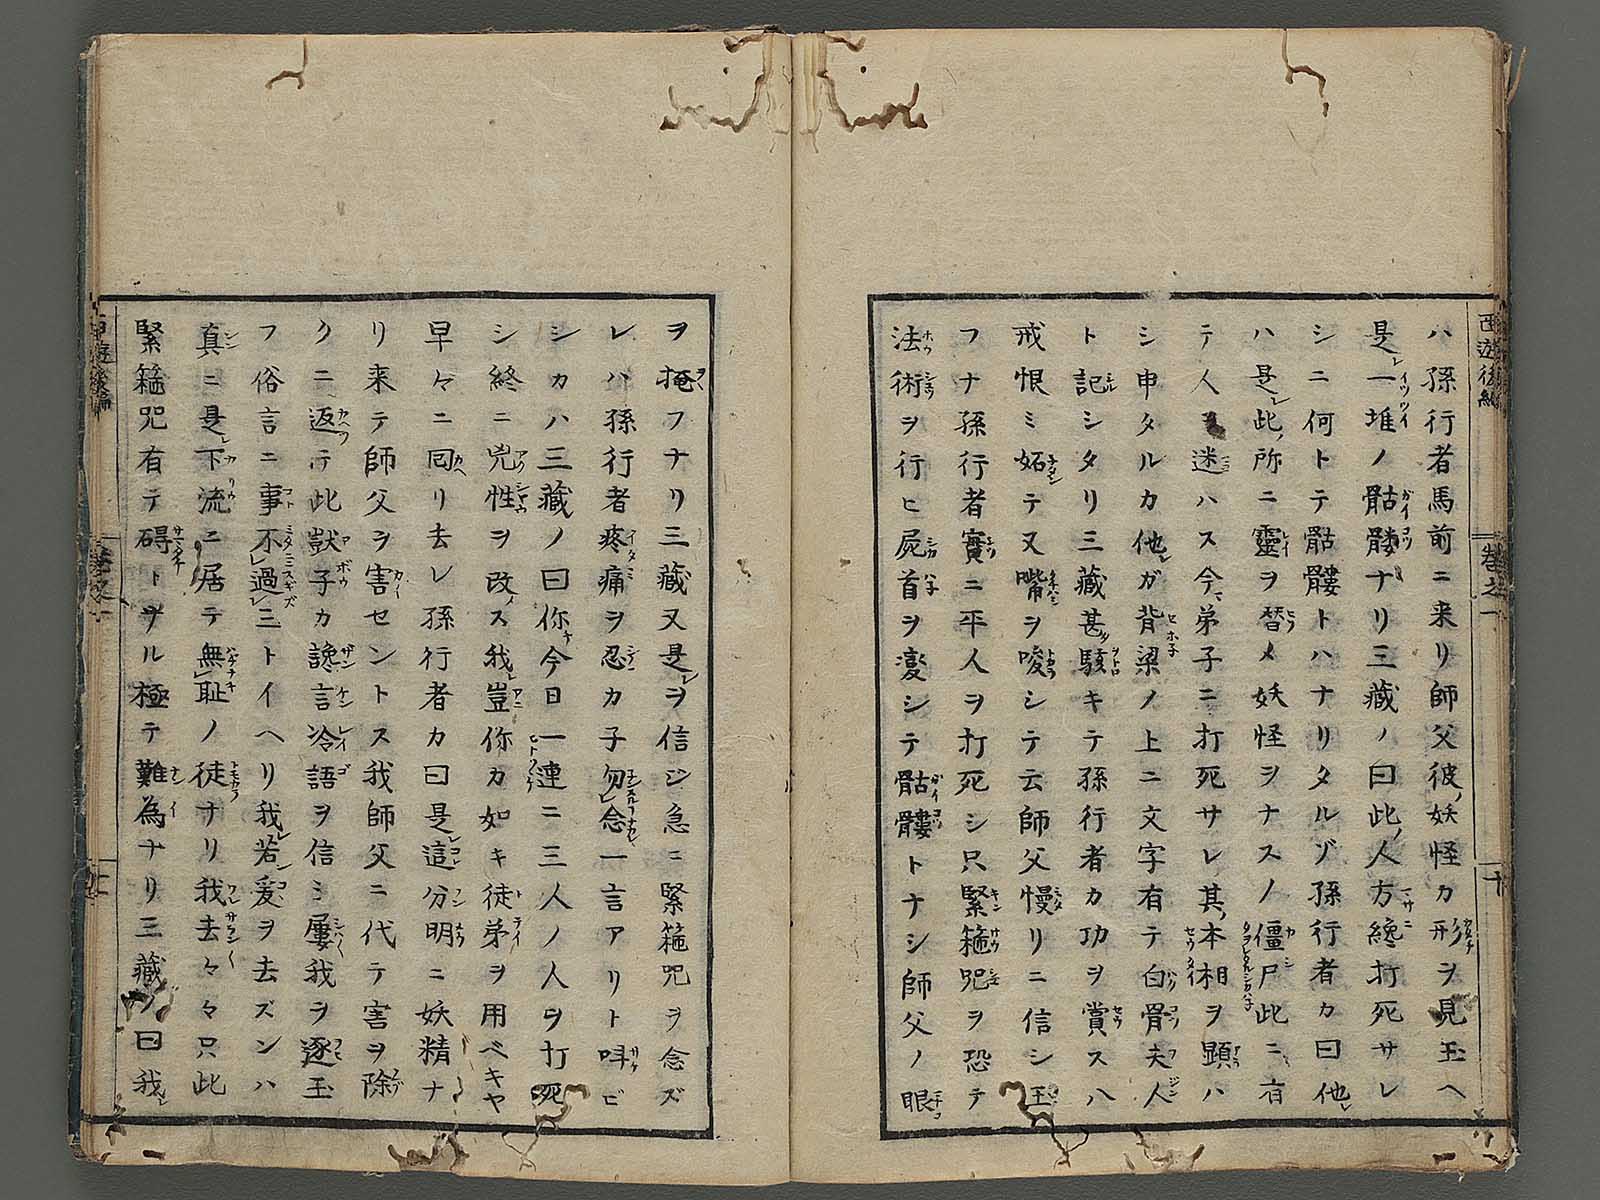 ハ孫行者馬前ニ来リ師父彼ノ妖怪カ形ヲ見玉ヘ
是一堆ノ骷髏ナリ三藏ノ曰此ノ人方纔打死サレ
シニ何トテ骷髏トハナリタルゾ孫行者カ曰他
ハ是此ノ所ニ靈ヲ朁メ妖怪ヲナスノ僵尸此ニ有
テ人ヲ迷ハス今弟子ニ打死サレ其ノ本相ヲ顕ハ
シ申タルカ他ガ背梁ノ上ニ文字有テ白骨夫人
ト記シタリ三藏甚駭キテ孫行者カ功ヲ賞スハ
戒恨ミ妬テ又嘴ヲ唆シテ云師父慢リニ信シ玉
フナ孫行者實ニ平人ヲ打死シ只緊箍咒ヲ恐テ
法術ヲ行ヒ屍首ヲ変シテ骷髏トナシ師父ノ眼
ヲ掩フナリ三藏又是ヲ信ジ急ニ緊箍咒ヲ念ズ
レハ孫行者疼痛ヲ忍カ子勿念一言アリト呌ビ
シカハ三藏ノ曰你今日一連ニ三人ノ人ヲ打死
シ終ニ兇性ヲ改メス我豈你カ如キ徒弟ヲ用ベキヤ
早々ニ囘リ去レ孫行者カ曰是這分明ニ妖精ナ
リ来テ師父ヲ害セントス我師父ニ代テ害ヲ除
クニ返テ此獃子カ讒言冷語ヲ信ミ屢我ヲ逐玉
フ俗言ニ事不過三トイヘリ我若爰ヲ去ズンハ
真ニ是下流ニ居テ無恥ノ徒ナリ我去々々只此
緊箍咒有テ碍トヲル極テ難為ナリ三藏ノ曰我
西遊後編
巻之一
十